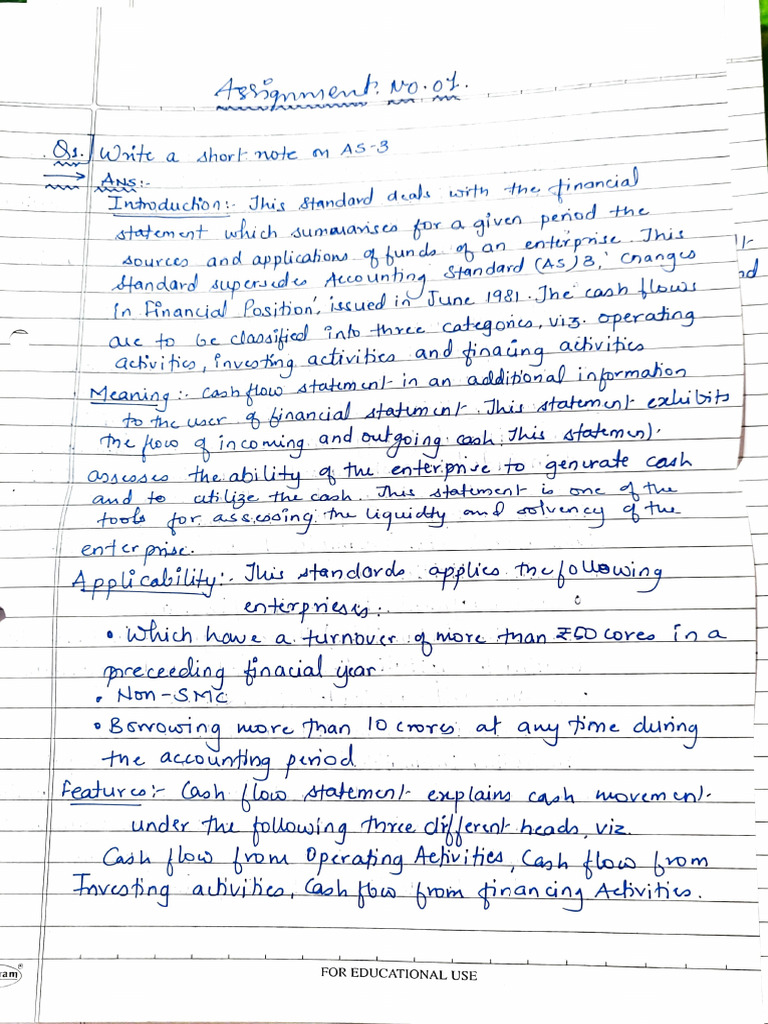 Assignment No. 01.
Q1. Write a short note on AS-3
Ans:-
Introduction:- This standard deals with the financial
statement which summarises for a given period the
sources and applications of funds of an enterprise. This
standard supersedes Accounting Standard (AS) 3, 'changes
in Financial Position', issued in June 1981. The cash flows
are to be classified into three categories, viz. operating
activities, investing activities and finacing activities
Meaning:- cash flow statement in an additional information
to the user of financial statement. This statement exhibits
the flow of incoming and outgoing cash. This statement
assesses the ability of the enterprise to generate cash
and to utilize the cash. This statement is one of the
tools for assessing the liquidty and solvency of the
enterprise.
Applicability:- This standards applies the following
enterprieses:
• Which have a turnover of more than ₹50 cores in a
preceeding finacial year.
• Non-SMC
• Borrowing more than 10 crores at any time during
the accounting period
Features:- Cash flow statement explains cash movement
under the following three different heads, viz.
Cash flow from Operating Activities, Cash flow from
Investing activities, Cash flow from financing Activities.
FOR EDUCATIONAL USE